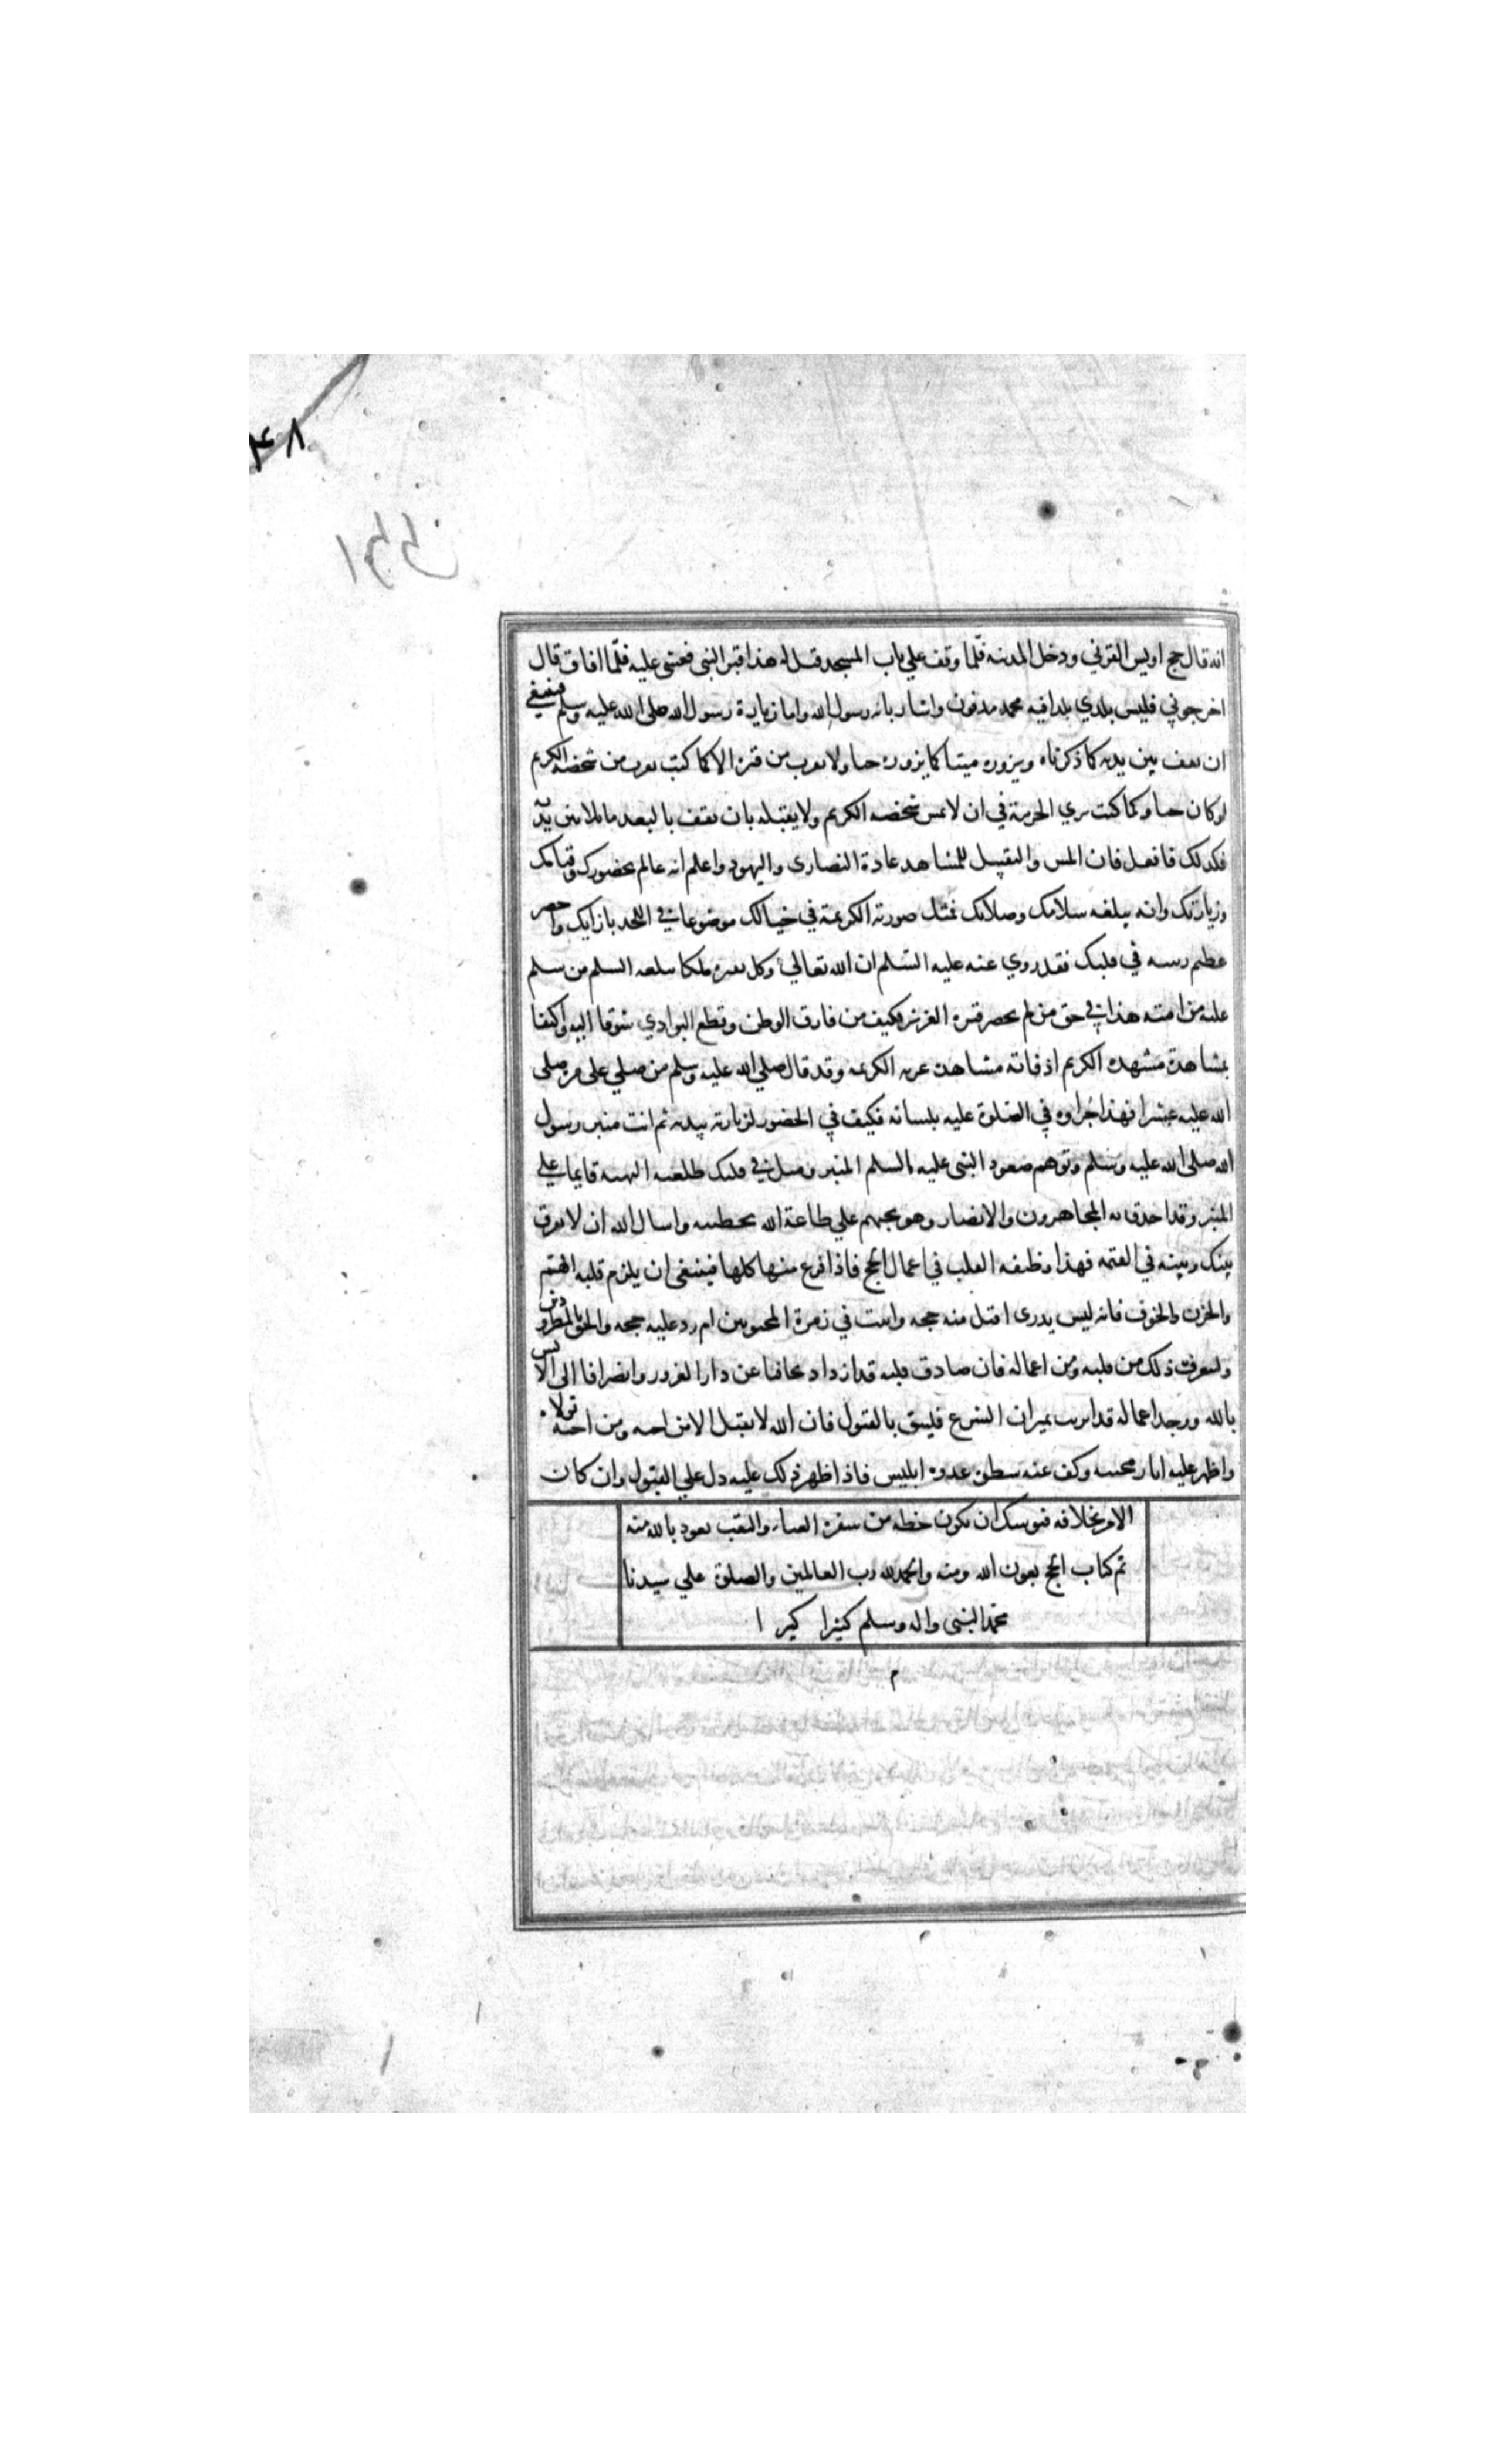 ۴۸
انه قال حج اويس القرني ودخل المدينه فلما وقف علي باب المسجد قيل له هذا قبر النبى فغشى عليه فلما افاق قال
اخرجوني فليس بلدي بلدا فيه محمد مدفون واشار بانه رسول الله واما زيارة رسول الله صلى الله عليه وسلم فينبغي
ان تقف بين يديه كما ذكرناه وتزوره ميتا كما تزوره حيا ولا تقرب من قبره الا كما كنت تقرب من شخصه الكريم
لو كان حيا وكما كنت ترى الحرمة في ان لا تمس شخصه الكريم ولا تقبله بان تقف بالبعد ماثلا بين يديه
فكذلك فافعل فان المس والتقبيل للمشاهد عادة النصارى واليهود واعلم انه عالم بحضورك وقيامك
وزيارتك وانه يبلغه سلامك وصلاتك فمثل صورته الكريمة في خيالك موضوعا في اللحد بازايك واحضر
عظيم رتبته في قلبك فقد روي عنه عليه السلم ان الله تعالي وكل بقبره ملكا يبلغه السلم من سلم
عليه من امته هذا في حق من لم يحضر قبره العزيز فكيف من فارق الوطن وقطع البوادي شوقا اليه واكتفا
بمشاهدة مشهده الكريم اذ فاته مشاهدة غرته الكريمه وقد قال صلي الله عليه وسلم من صلي علي مرة صلى
الله عليه عشرا فهذا جزاوه في الصلوة عليه بلسانه فكيف في الحضور لزيارته ببدنه ثم ائت منبر رسول
الله صلى الله عليه وسلم وتوهم صعود النبى عليه السلم المنبر ومثل في قلبك طلعته البهية قايما علي
المنبر وقد احدق به المهاجرون والانصار وهو يحثهم علي طاعة الله بخطبته واسال الله ان لا يفرق
بينك وبينه في القيمه فهذا وظيفه القلب في اعمال الحج فاذا فرغ منها كلها فينبغى ان يلزم قلبه الهم
والحزن والخوف فانه ليس يدرى اقبل منه حجه واثبت في زمرة المحبوبين ام رد عليه حجه والحق بالمطرودين
وليعرف ذلك من قلبه ومن اعماله فان صادف قلبه قد ازداد تجافيا عن دار الغرور وانصرافا الى الانس
بالله ووجد اعماله قد اتزنت بميزان الشرع فليثق بالقبول فان الله لا يقبل الا من احبه ومن احبه تولاه
واظهر عليه اثار محبته وكف عنه سطوة عدوه ابليس فاذا ظهر ذلك عليه دل علي القبول وان كان
الامر بخلافه فيوشك ان يكون حظه من سفره العناء والتعب نعوذ بالله منه
تم كتاب الحج بعون الله ومنه والحمد لله رب العالمين والصلوة علي سيدنا
محمد النبى واله وسلم كثيرا كثيرا
م